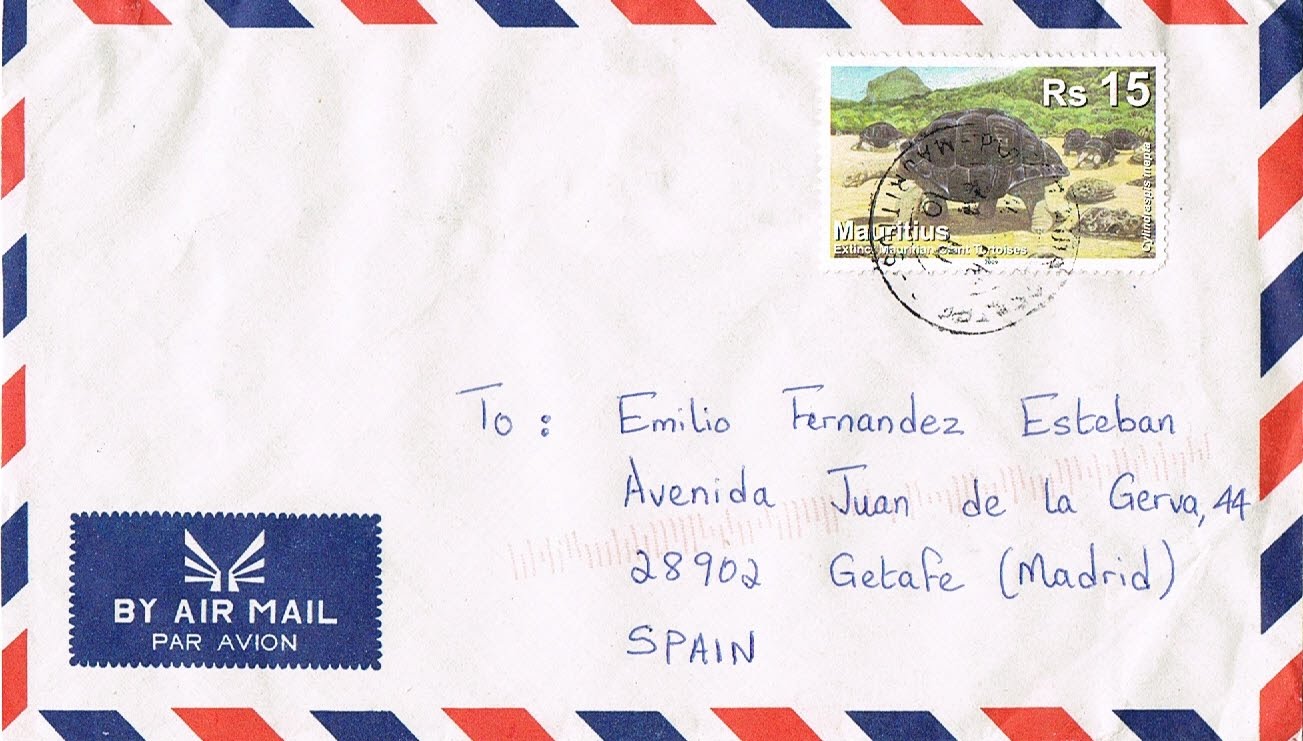 Rs 15
Cylindraspis inepta
Mauritius
Extinct Mauritian Giant Tortoises
MAURITIUS
To : Emilio Fernandez Esteban
Avenida Juan de la Gerva, 44
28902 Getafe (Madrid)
SPAIN
BY AIR MAIL
PAR AVION